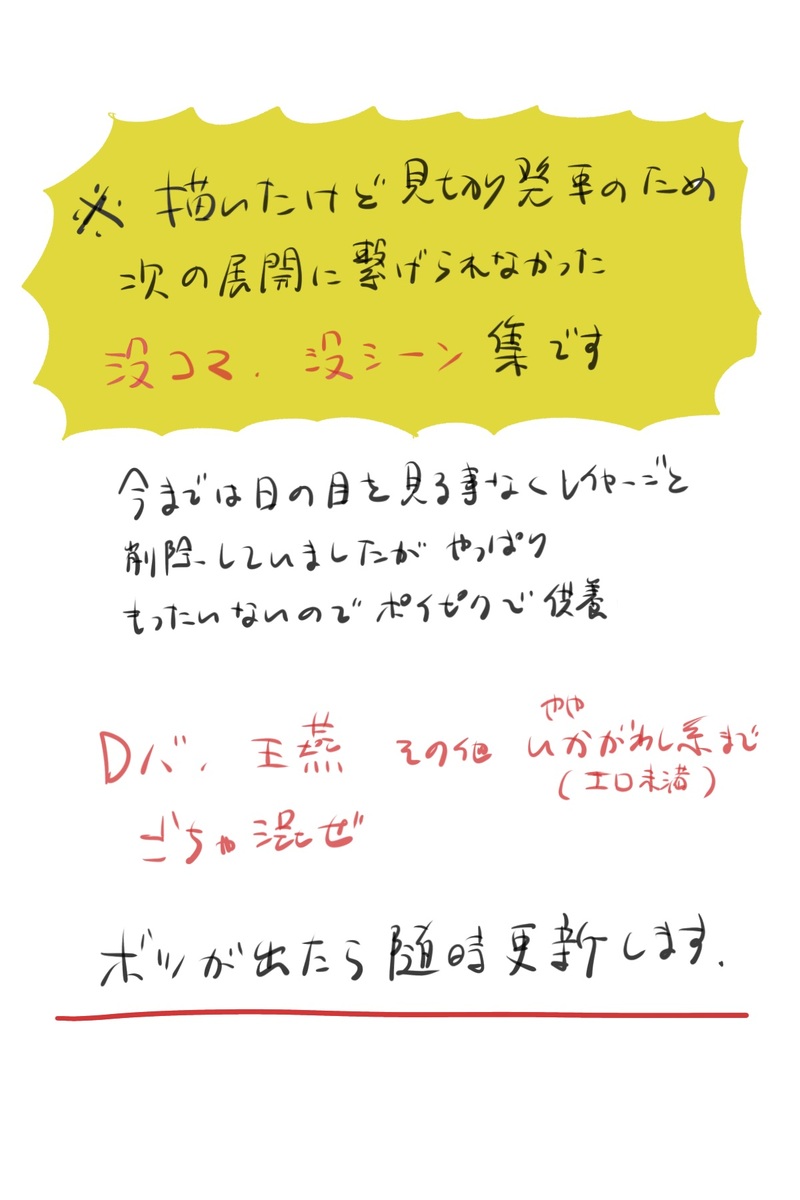 ※ 描いたけど見切り発車のため
次の展開に繋げられなかった
没コマ、没シーン集です
今までは日の目を見る事なくレイヤーごと
削除していましたがやっぱり
もったいないのでポイピクで供養
Dバ、王燕 その他 ややいかがわし系まで
(エロ未満)
ごちゃ混ぜ
ボツが出たら随時更新します.